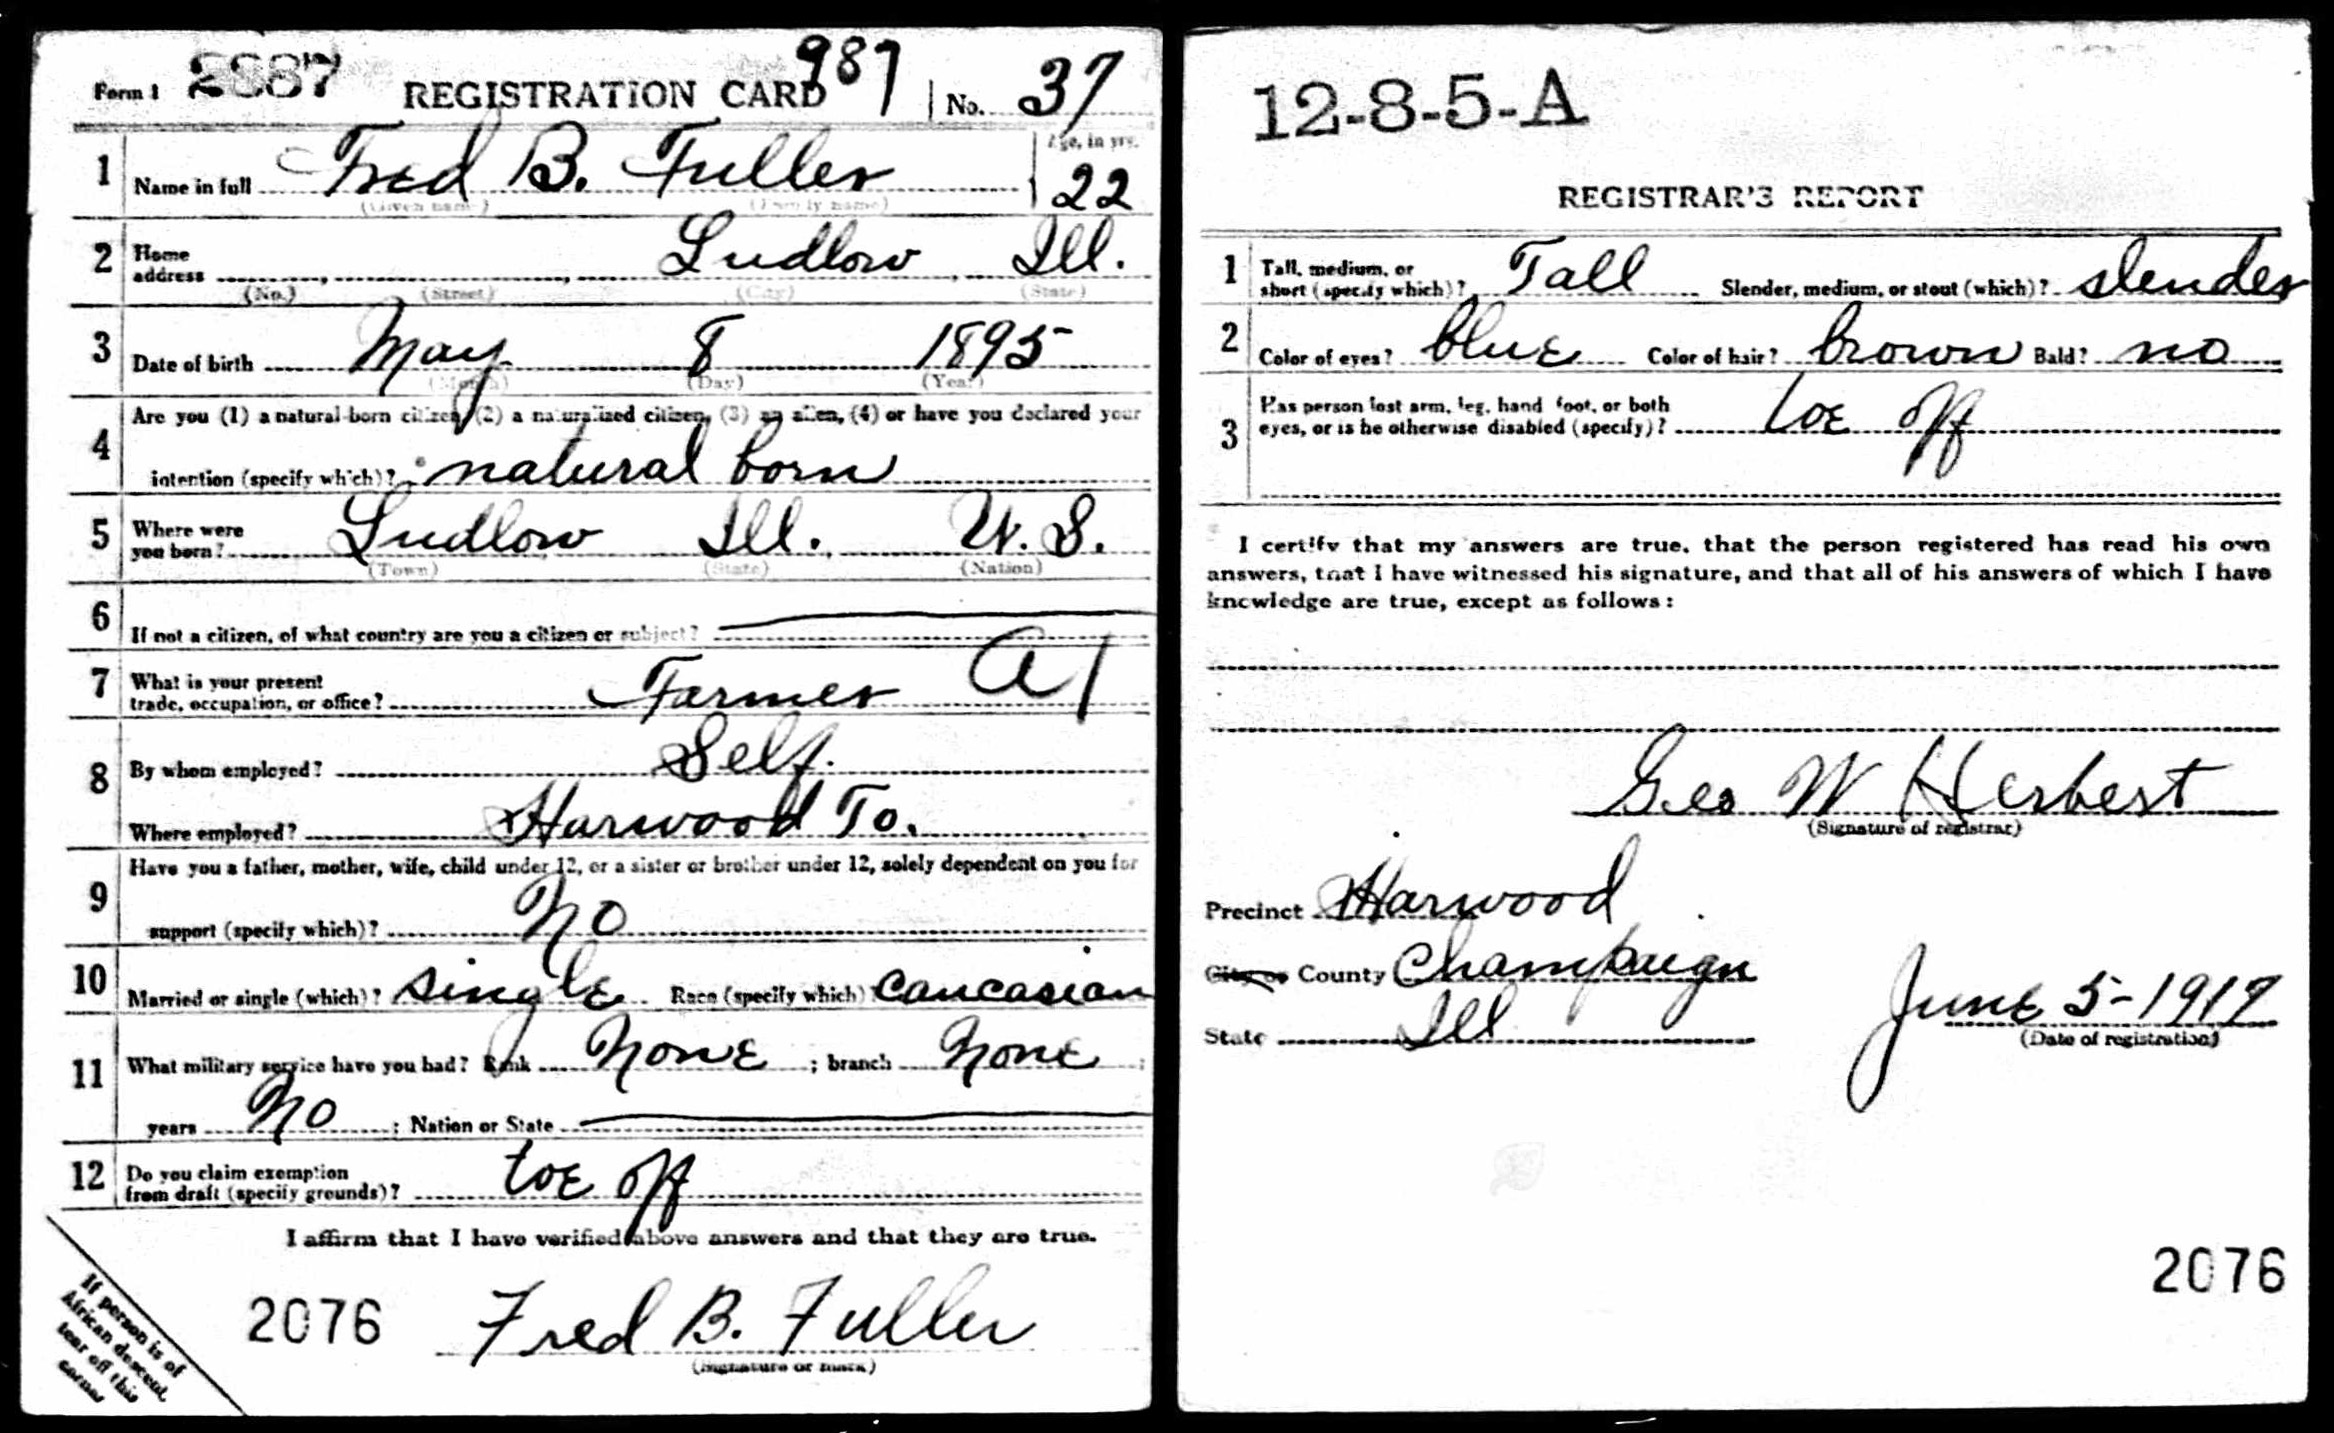 Form 1 2887 REGISTRATION CARD 987 No. 37
1 Name in full Fred B. Fuller Age, in yrs. 22
(Given name) (Family name)
2 Home address Ludlow Ill.
(No.) (Street) (City) (State)
3 Date of birth May 8 1895
(Month) (Day) (Year)
4 Are you (1) a natural-born citizen, (2) a naturalized citizen, (3) an alen, (4) or have you declared your
intention (specify which)? natural born
5 Where were you born? Ludlow Ill. U. S.
(Town) (State) (Nation)
6 If not a citizen, of what country are you a citizen or subject?
7 What is your present trade, occupation, or office? Farmer A1
8 By whom employed? Self.
Where employed? Harwood To.
9 Have you a father, mother, wife, child under 12, or a sister or brother under 12, solely dependent on you for
support (specify which)? No
10 Married or single (which)? single Race (specify which)? caucasian
11 What military service have you had? Rank none ; branch none ;
years No ; Nation or State
12 Do you claim exemption from draft (specify grounds)? toe off
I affirm that I have verified above answers and that they are true.
2076 Fred B. Fuller
(Signature or mark)
If person is of
African descent,
tear off this
corner
12-8-5-A
REGISTRAR'S REPORT
1 Tall, medium, or short (specify which)? Tall Slender, medium, or stout (which)? slender
2 Color of eyes? blue Color of hair? brown Bald? no
3 Has person lost arm, leg, hand foot, or both
eyes, or is he otherwise disabled (specify)? toe off
I certify that my answers are true, that the person registered has read his own
answers, that I have witnessed his signature, and that all of his answers of which I have
knowledge are true, except as follows:
Geo W Herbert
(Signature of registrar)
Precinct Harwood
City or County Champaign
State Ill June 5-1917
(Date of registration)
2076